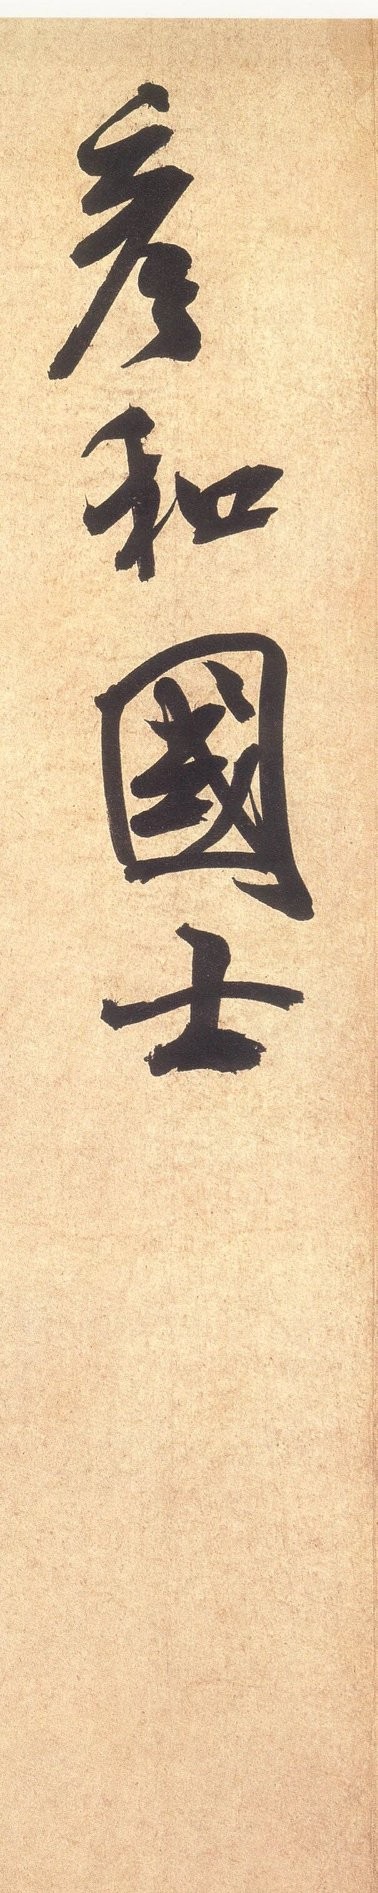 彥和國士